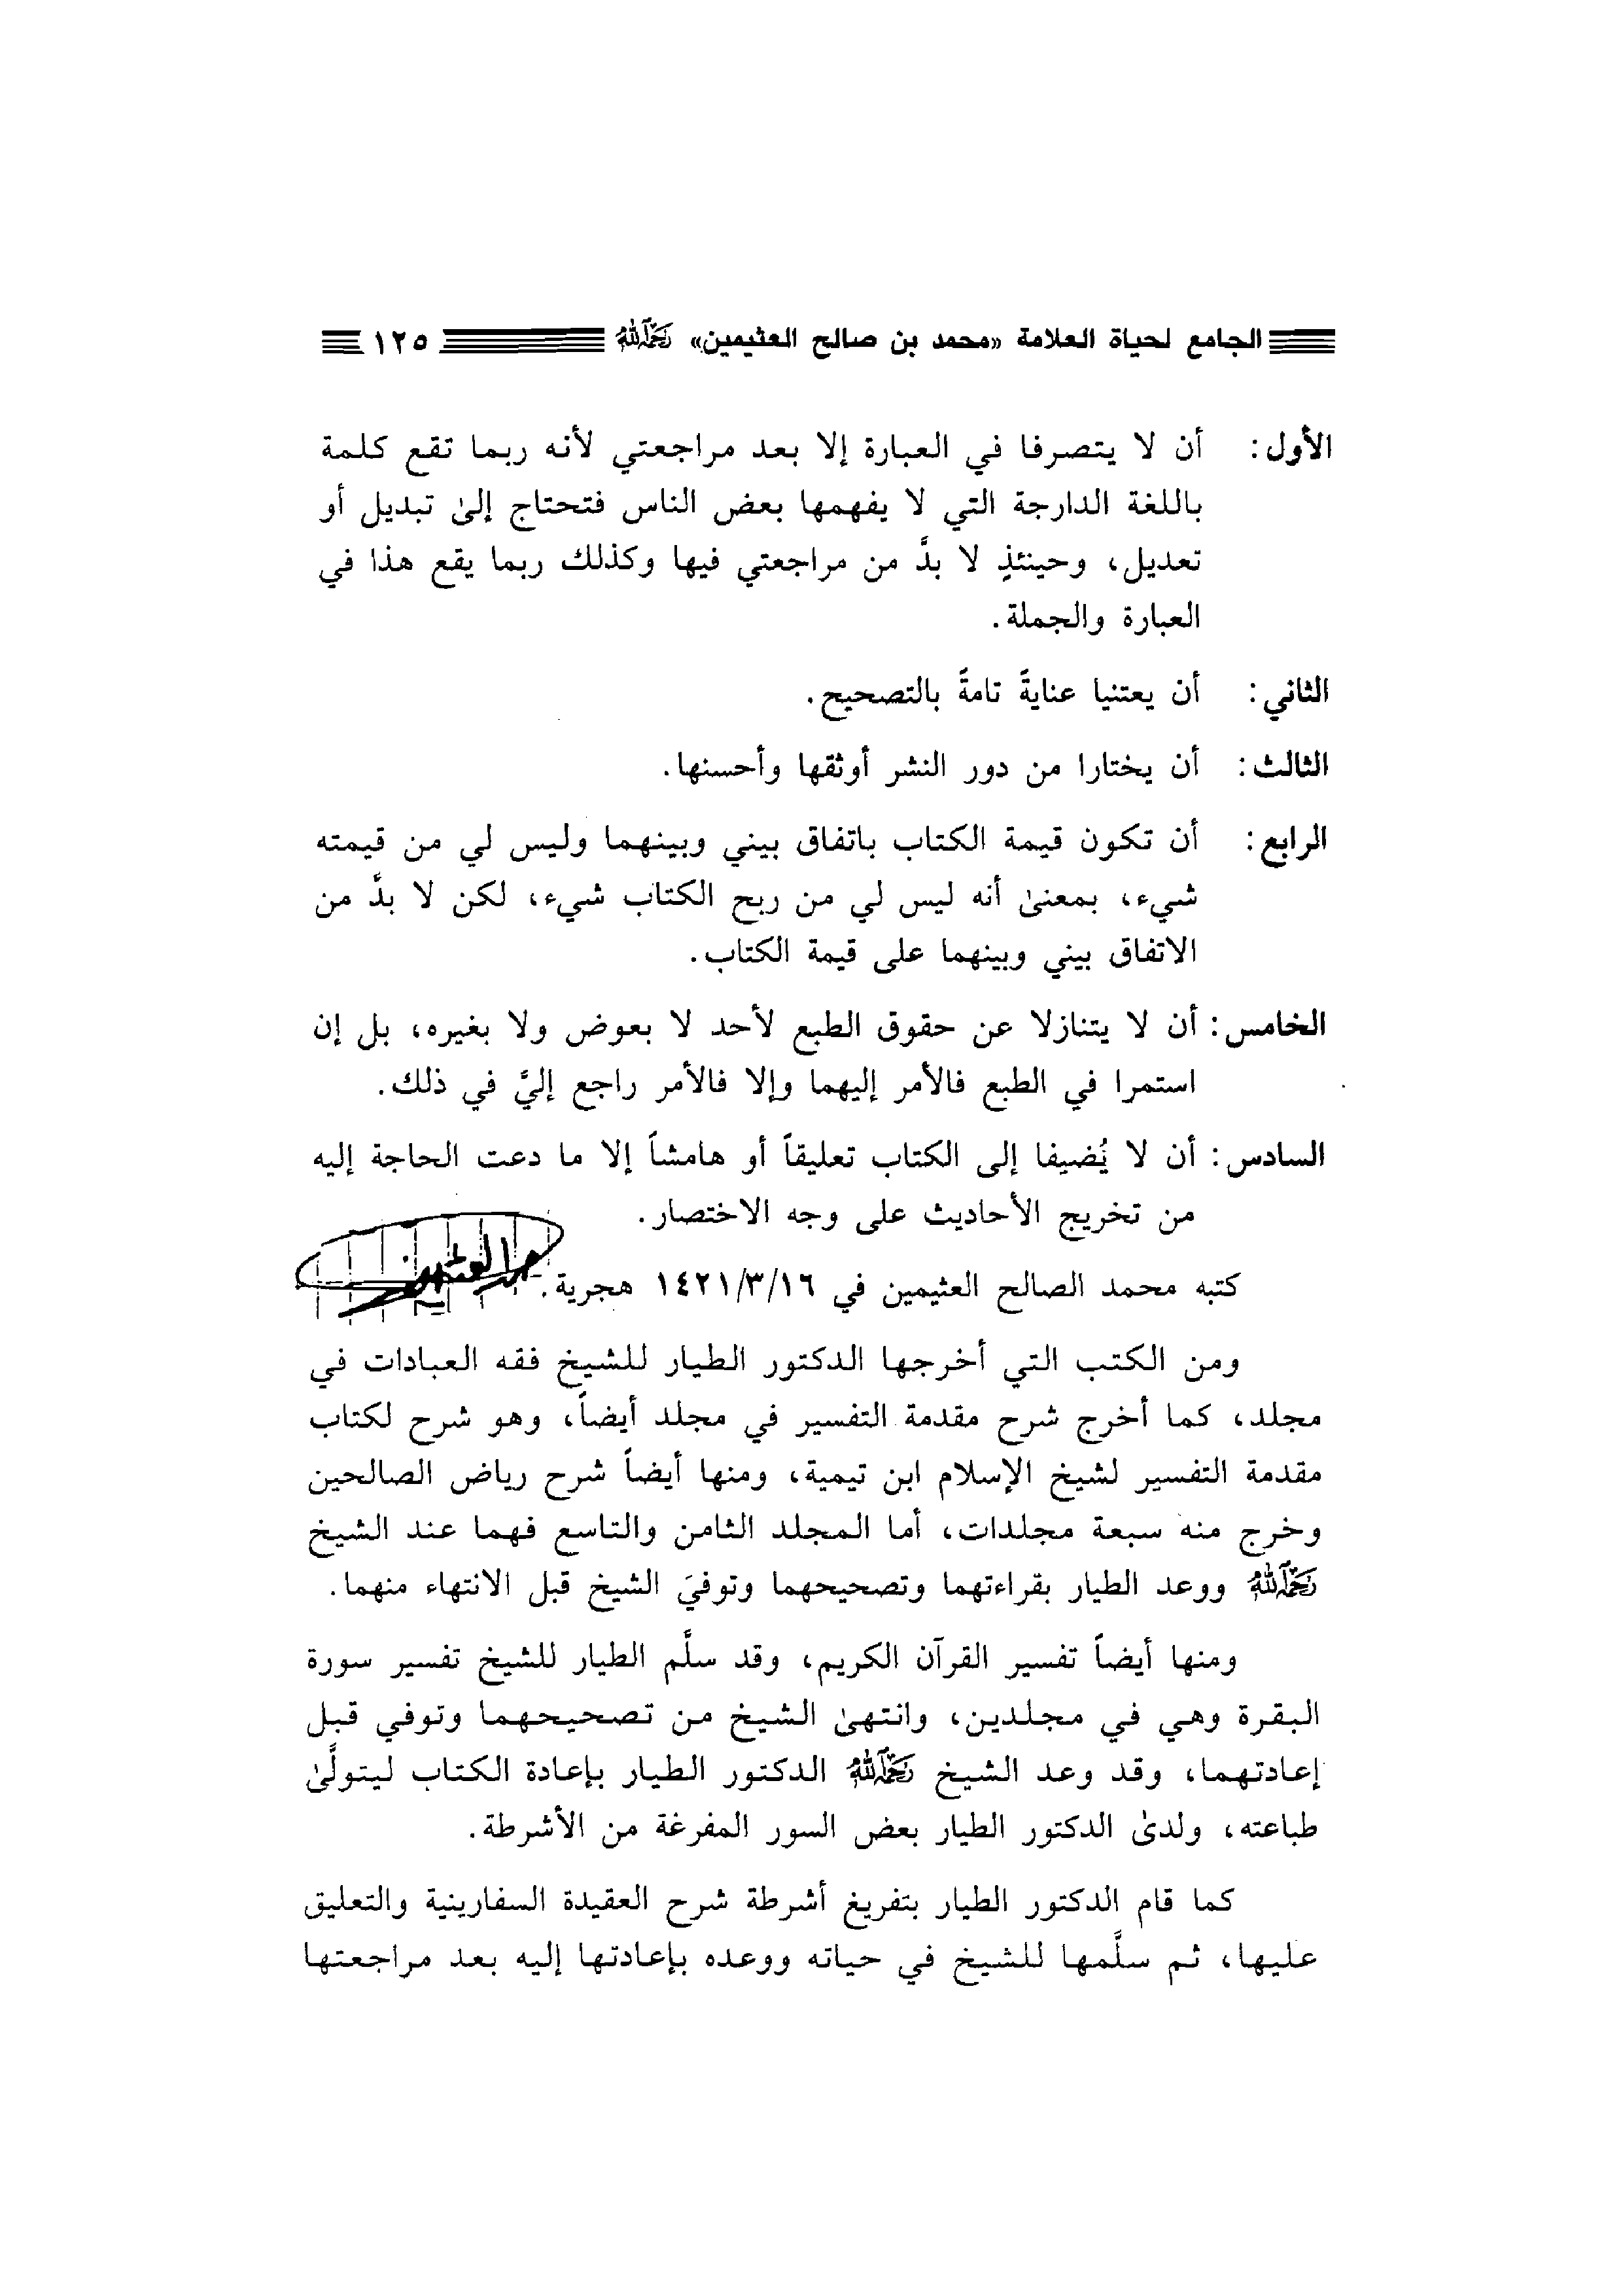 الجامع لحياة العلامة «محمد بن صالح العثيمين» رحمه الله ١٢٥
الأول: أن لا يتصرفا في العبارة إلا بعد مراجعتي لأنه ربما تقع كلمة
باللغة الدارجة التي لا يفهمها بعض الناس فتحتاج إلىٰ تبديل أو
تعديل، وحينئذٍ لا بدَّ من مراجعتي فيها وكذلك ربما يقع هذا في
العبارة والجملة.
الثاني: أن يعتنيا عنايةً تامةً بالتصحيح.
الثالث: أن يختارا من دور النشر أوثقها وأحسنها.
الرابع: أن تكون قيمة الكتاب باتفاق بيني وبينهما وليس لي من قيمته
شيء، بمعنىٰ أنه ليس لي من ربح الكتاب شيء، لكن لا بدَّ من
الاتفاق بيني وبينهما على قيمة الكتاب.
الخامس: أن لا يتنازلا عن حقوق الطبع لأحد لا بعوض ولا بغيره، بل إن
استمرا في الطبع فالأمر إليهما وإلا فالأمر راجع إليَّ في ذلك.
السادس: أن لا يُضيفا إلى الكتاب تعليقاً أو هامشاً إلا ما دعت الحاجة إليه
من تخريج الأحاديث على وجه الاختصار.
كتبه محمد الصالح العثيمين في ١٤٢١/٣/١٦ هجرية.
ومن الكتب التي أخرجها الدكتور الطيار للشيخ فقه العبادات في
مجلد، كما أخرج شرح مقدمة التفسير في مجلد أيضاً، وهو شرح لكتاب
مقدمة التفسير لشيخ الإسلام ابن تيمية، ومنها أيضاً شرح رياض الصالحين
وخرج منه سبعة مجلدات، أما المجلد الثامن والتاسع فهما عند الشيخ
رحمه الله ووعد الطيار بقراءتهما وتصحيحهما وتوفيَ الشيخ قبل الانتهاء منهما.
ومنها أيضاً تفسير القرآن الكريم، وقد سلَّم الطيار للشيخ تفسير سورة
البقرة وهي في مجلدين، وانتهىٰ الشيخ من تصحيحهما وتوفي قبل
إعادتهما، وقد وعد الشيخ رحمه الله الدكتور الطيار بإعادة الكتاب ليتولَّىٰ
طباعته، ولدىٰ الدكتور الطيار بعض السور المفرغة من الأشرطة.
كما قام الدكتور الطيار بتفريغ أشرطة شرح العقيدة السفارينية والتعليق
عليها، ثم سلَّمها للشيخ في حياته ووعده بإعادتها إليه بعد مراجعتها